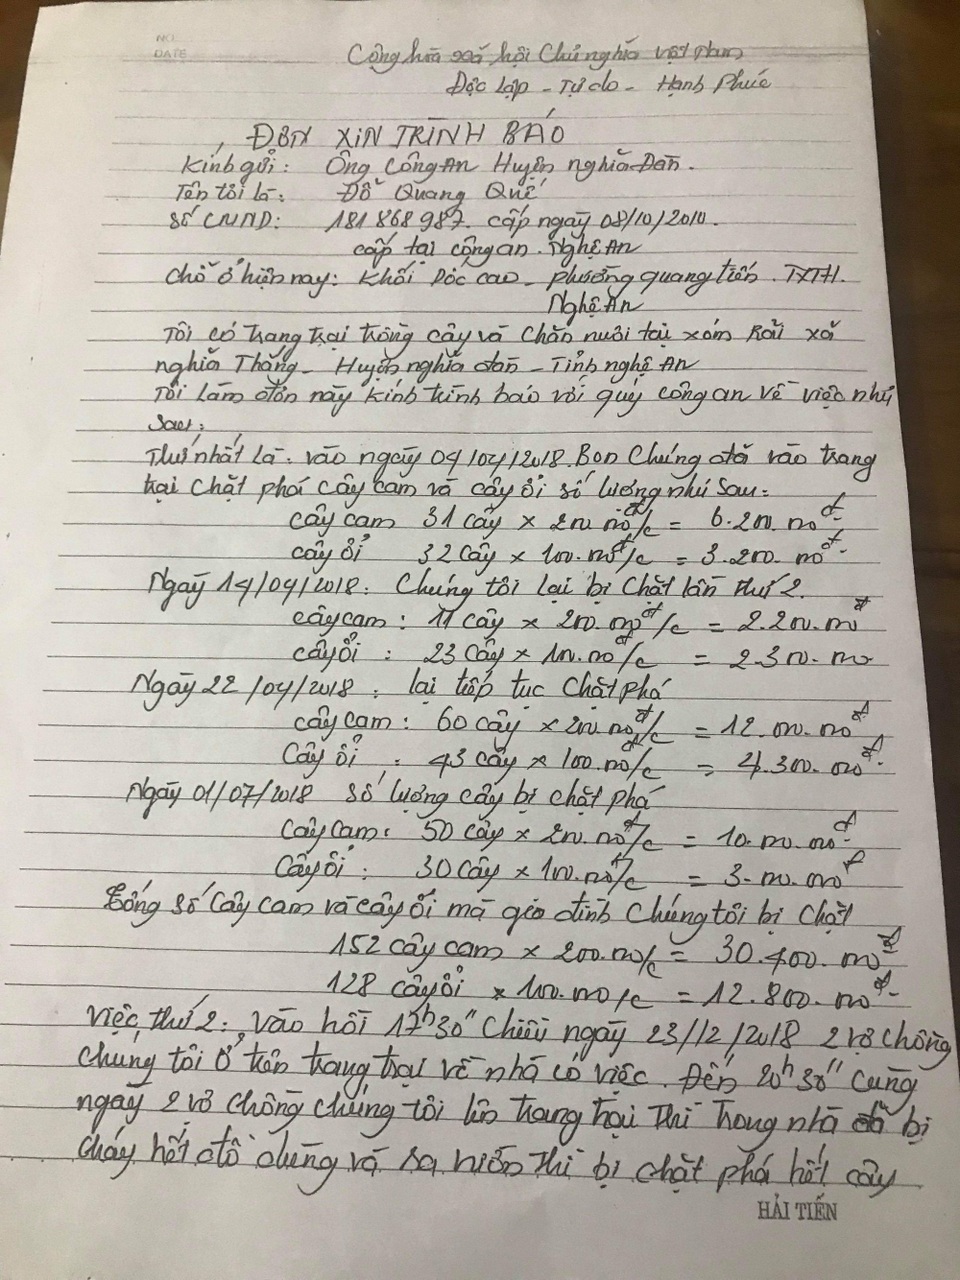 NO.
DATE
Cộng hòa xã hội Chủ nghĩa việt Nam
Độc lập - Tự do - Hạnh Phúc
ĐƠN XIN TRÌNH BÁO
Kính gửi: Ông Công An Huyện nghĩa Đàn.
Tên tôi là: Đỗ Quang Quế
Số CMND: 181868987. cấp ngày 08/10/2010.
cấp tại công an. Nghệ An
Chỗ ở hiện nay: Khối Dốc cao - phường quang tiến. TXTH.
Nghệ An
Tôi có trang trại trồng cây và Chăn nuôi tại xóm Bãi xã
nghĩa Thắng - Huyện nghĩa đàn - Tỉnh nghệ An
Tôi làm đơn này kính trình báo với quý công an về việc như
sau:
Thứ nhất là: vào ngày 04/04/2018. Bọn Chúng đã vào trang
trại Chặt phá cây cam và cây ổi số lượng như sau:
cây cam 31 cây x 200.000đ/c = 6.200.000đ
cây ổi 32 cây x 100.000đ/c = 3.200.000đ
Ngày 14/04/2018: Chúng tôi lại bị Chặt lần thứ 2.
cây cam: 11 cây x 200.000đ/c = 2.200.000đ
cây ổi: 23 cây x 100.000đ/c = 2.300.000
Ngày 22/04/2018: lại tiếp tục Chặt phá
cây cam: 60 cây x 200.000đ/c = 12.000.000đ
Cây ổi: 43 cây x 100.000đ/c = 4.300.000đ
Ngày 01/07/2018 số lượng cây bị chặt phá
Cây cam: 50 cây x 200.000đ/c = 10.000.000đ
Cây ổi: 30 cây x 100.000đ/c = 3.000.000đ
Tổng số cây cam và cây ổi mà gia đình Chúng tôi bị Chặt
152 cây cam x 200.000/c = 30.400.000đ
128 cây ổi x 100.000/c = 12.800.000đ
Việc thứ 2: Vào hồi 17h30" Chiều ngày 23/12/2018 2 vợ chồng
chúng tôi ở trên trang trại về nhà có việc. Đến 20h30" cùng
ngày 2 vợ chồng chúng tôi lên trang trại thì trong nhà đã bị
cháy hết đồ dùng và ra vườn thì bị chặt phá hết cây
HẢI TIẾN